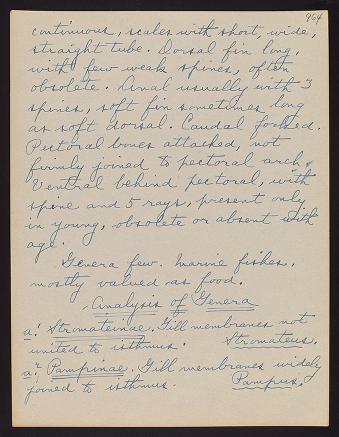 964
continuous, scales with short, wide,
straight tube. Dorsal fin long,
with few weak spines, often
obsolete. Anal usually with 3
spines, soft fin sometimes long
as soft dorsal. Caudal forked.
Pectoral bones attached, not
firmly joined to pectoral arch.
Ventral behind pectoral, with
spine and 5 rays, present only
in young, obsolete or absent with
age.
Genera few. Marine fishes,
mostly valued as food.
Analysis of Genera
a.¹ Stromateinae. Gill membranes not
united to isthmus. Stromateus.
a.² Pampinae. Gill membranes widely
joined to isthmus. Pampus.